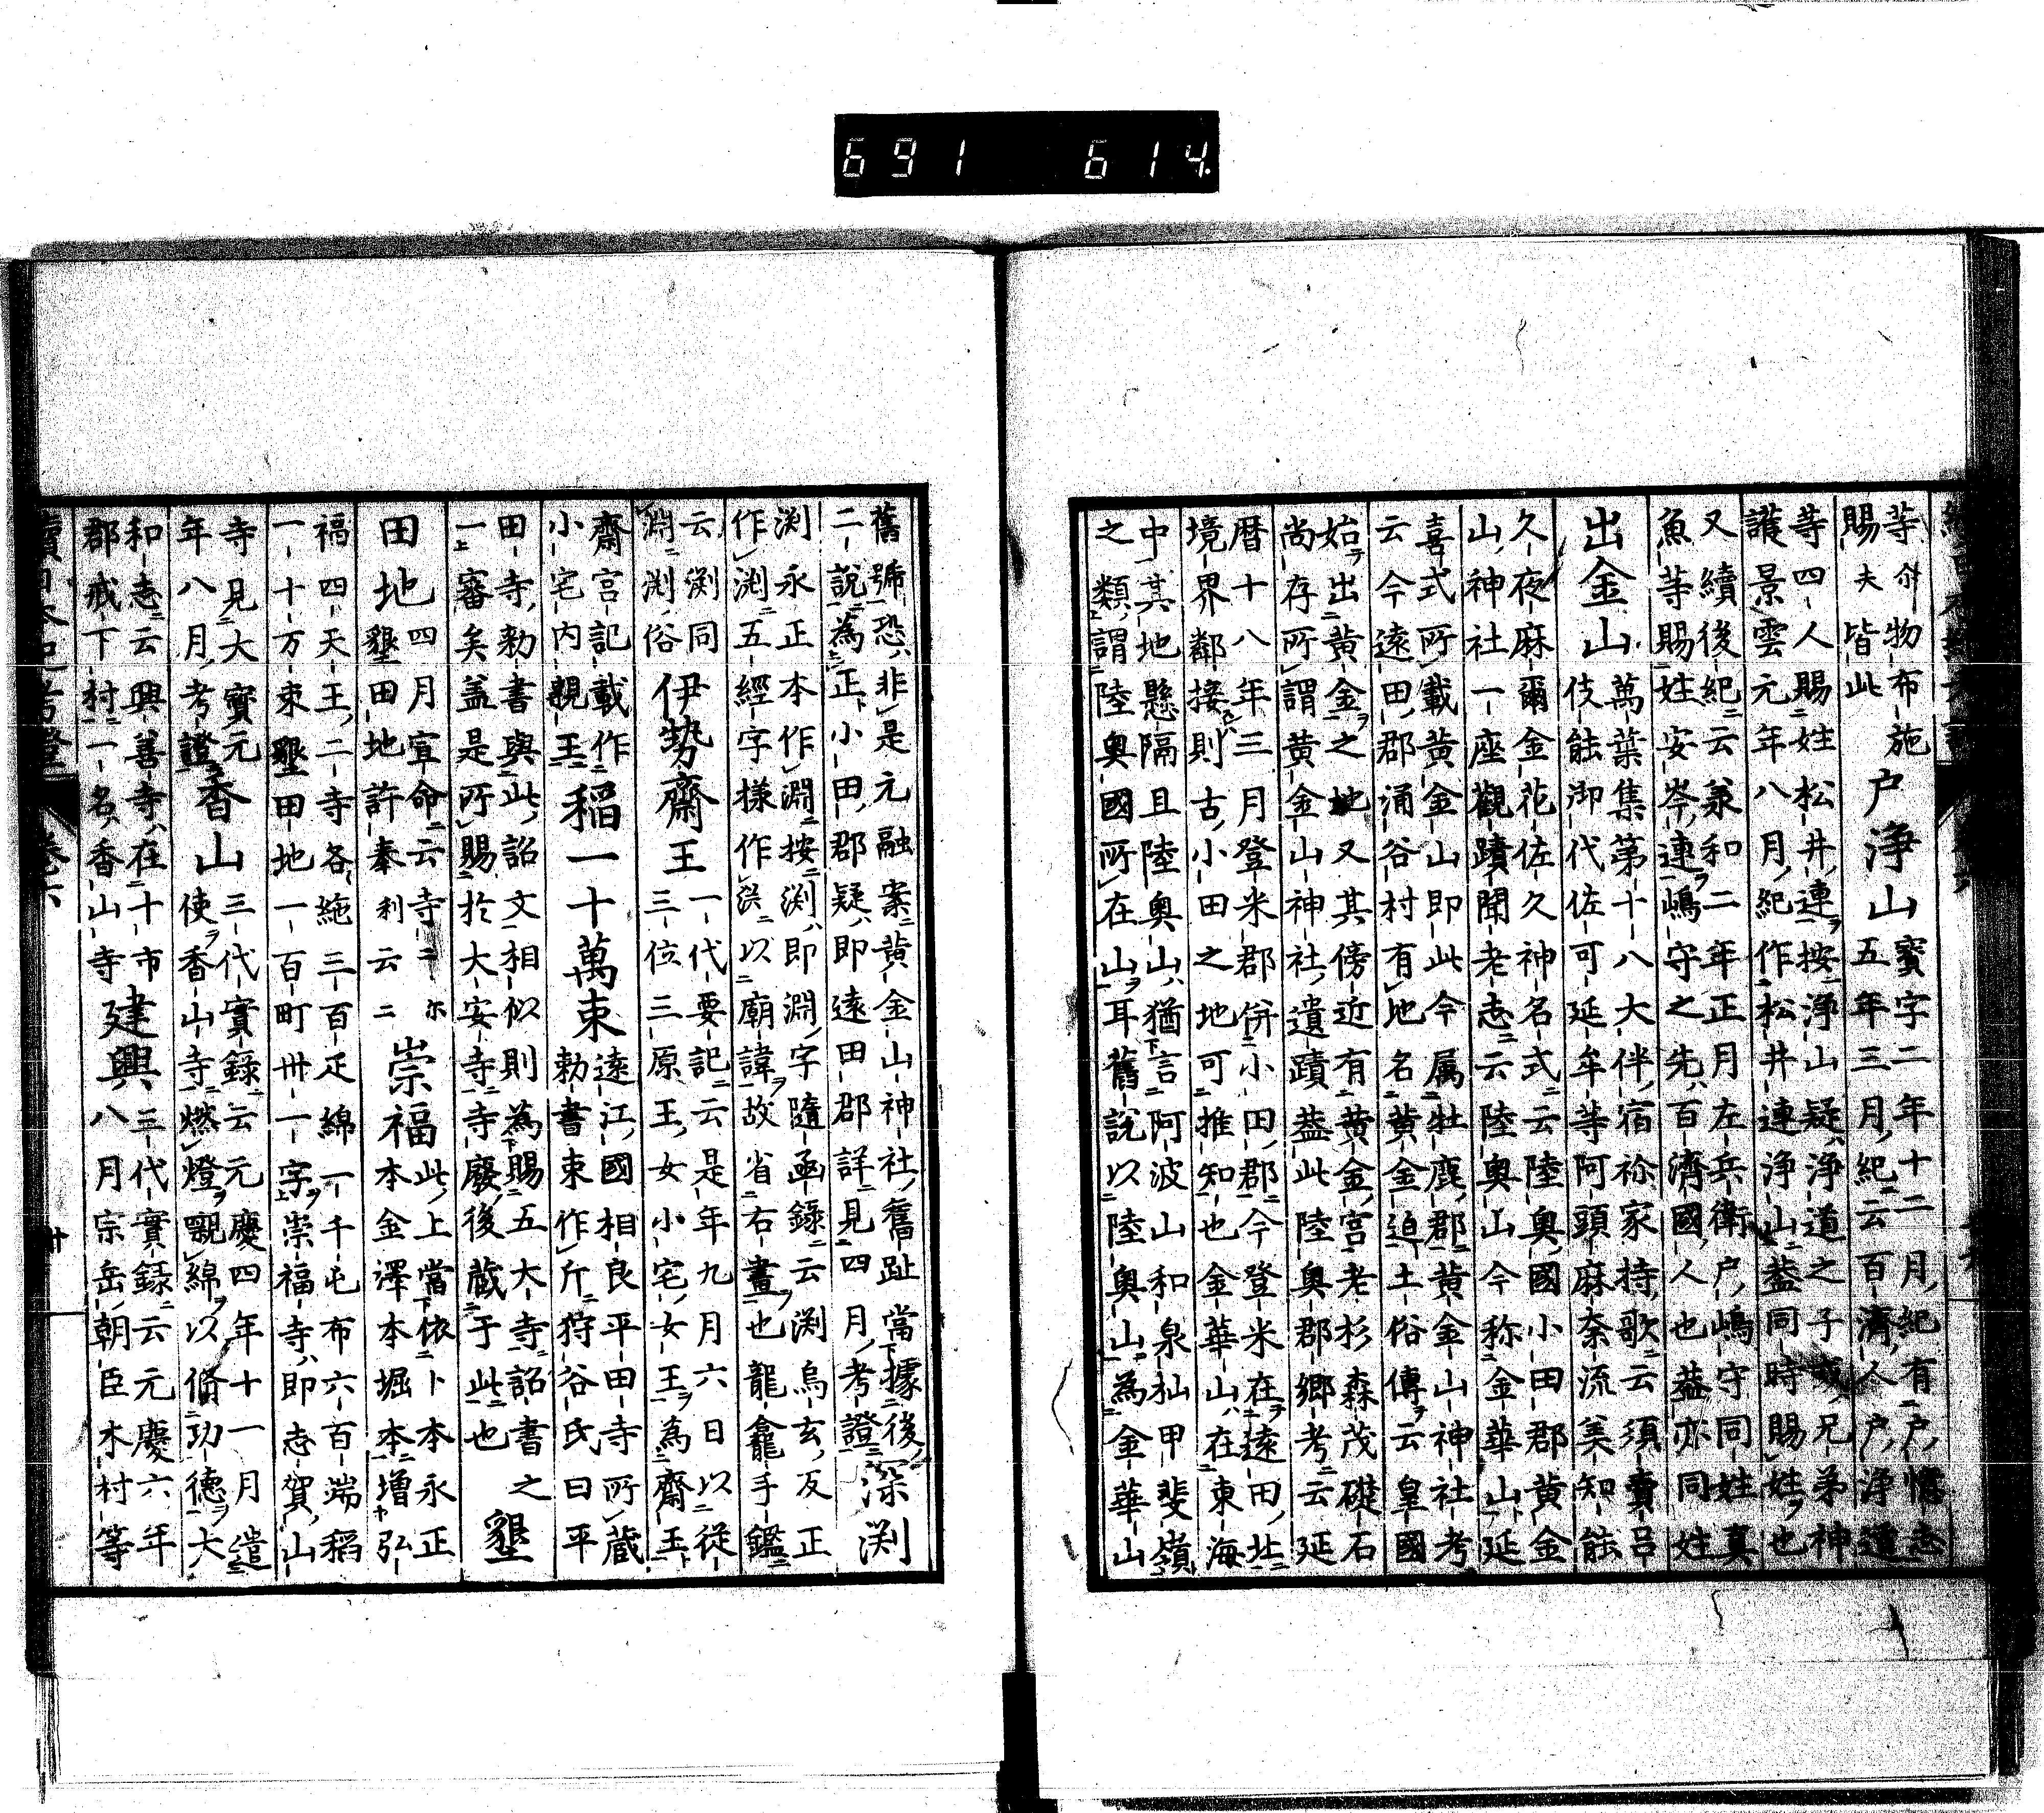 等斜物布施
賜夫皆此
戸浄山
寶字二年十二月紀有戸憶志
五年三月紀云百濟人戸浄道
等四人賜姓松井連按浄山疑浄道之子或兄弟神
護景雲元年八月紀作松井連浄山蓋同時賜姓也
又續後紀云兼和二年正月左兵衛戸嶋守同姓真
魚等賜姓安岑連嶋守之先百濟國人也蓋亦同姓
出金山
萬葉集第十八大伴宿祢家持歌云須賣呂
伎能御代佐可延牟等阿頭麻奈流美知能
久夜麻爾金花佐久神名式云陸奥國小田郡黄金
山神社一座觀蹟聞老志云陸奥山今称金華山延
喜式所載黄金山即此今属牡鹿郡黄金山神社考
云今遠田郡涌谷村有地名黄金迫土俗傳云皇國
始出黄金之地又其傍近有黄金宮老杉森茂礎石
尚存所謂黄金山神社遺蹟蓋此陸奥郡郷考云延
暦十八年三月登米郡併小田郡今登米在遠田北
境界鄰接則古小田之地可推知也金華山在東海
中其地懸隔且陸奥山猶言阿波山和泉杣甲斐嶺
之類謂陸奥國所在山耳舊說以陸奥山為金華山
舊號恐非是元融案黄金山神社舊趾當據後
二說為正小田郡疑即遠田郡詳見四月考證
深渕
渕永正本作淵按渕即淵字隨函錄云渕烏玄反正
作渕五經字様作渁以廟諱故省右畫也龍龕手鑑
云渕同
淵渕俗
伊勢齋王
一代要記云是年九月六日以從
三位三原王女小宅女王為齋王
齋宮記載作
小宅内親王
稲一十萬束
遠江國相良平田寺所蔵
勅書束作斤狩谷氏曰平
田寺勅書與此詔文相似則為賜五大寺詔書之
一審矣盖是所賜於大安寺寺廢後蔵于此也
墾
田地
四月宣命云寺二尓
墾田地許奉利云二
崇福
此上當依卜本永正
本金澤本堀本増弘
福四天王二寺各絁三百疋綿一千屯布六百端稲
一十万束墾田地一百町卅一字崇福寺即志賀山
寺見大寶元
年八月考證
香山
三代實錄云元慶四年十一月遣
使香山寺燃燈嚫綿以脩功德大
和志云興善寺在十市
郡戒下村一名香山寺
建興
三代實錄云元慶六年
八月宗岳朝臣木村等
691 614.